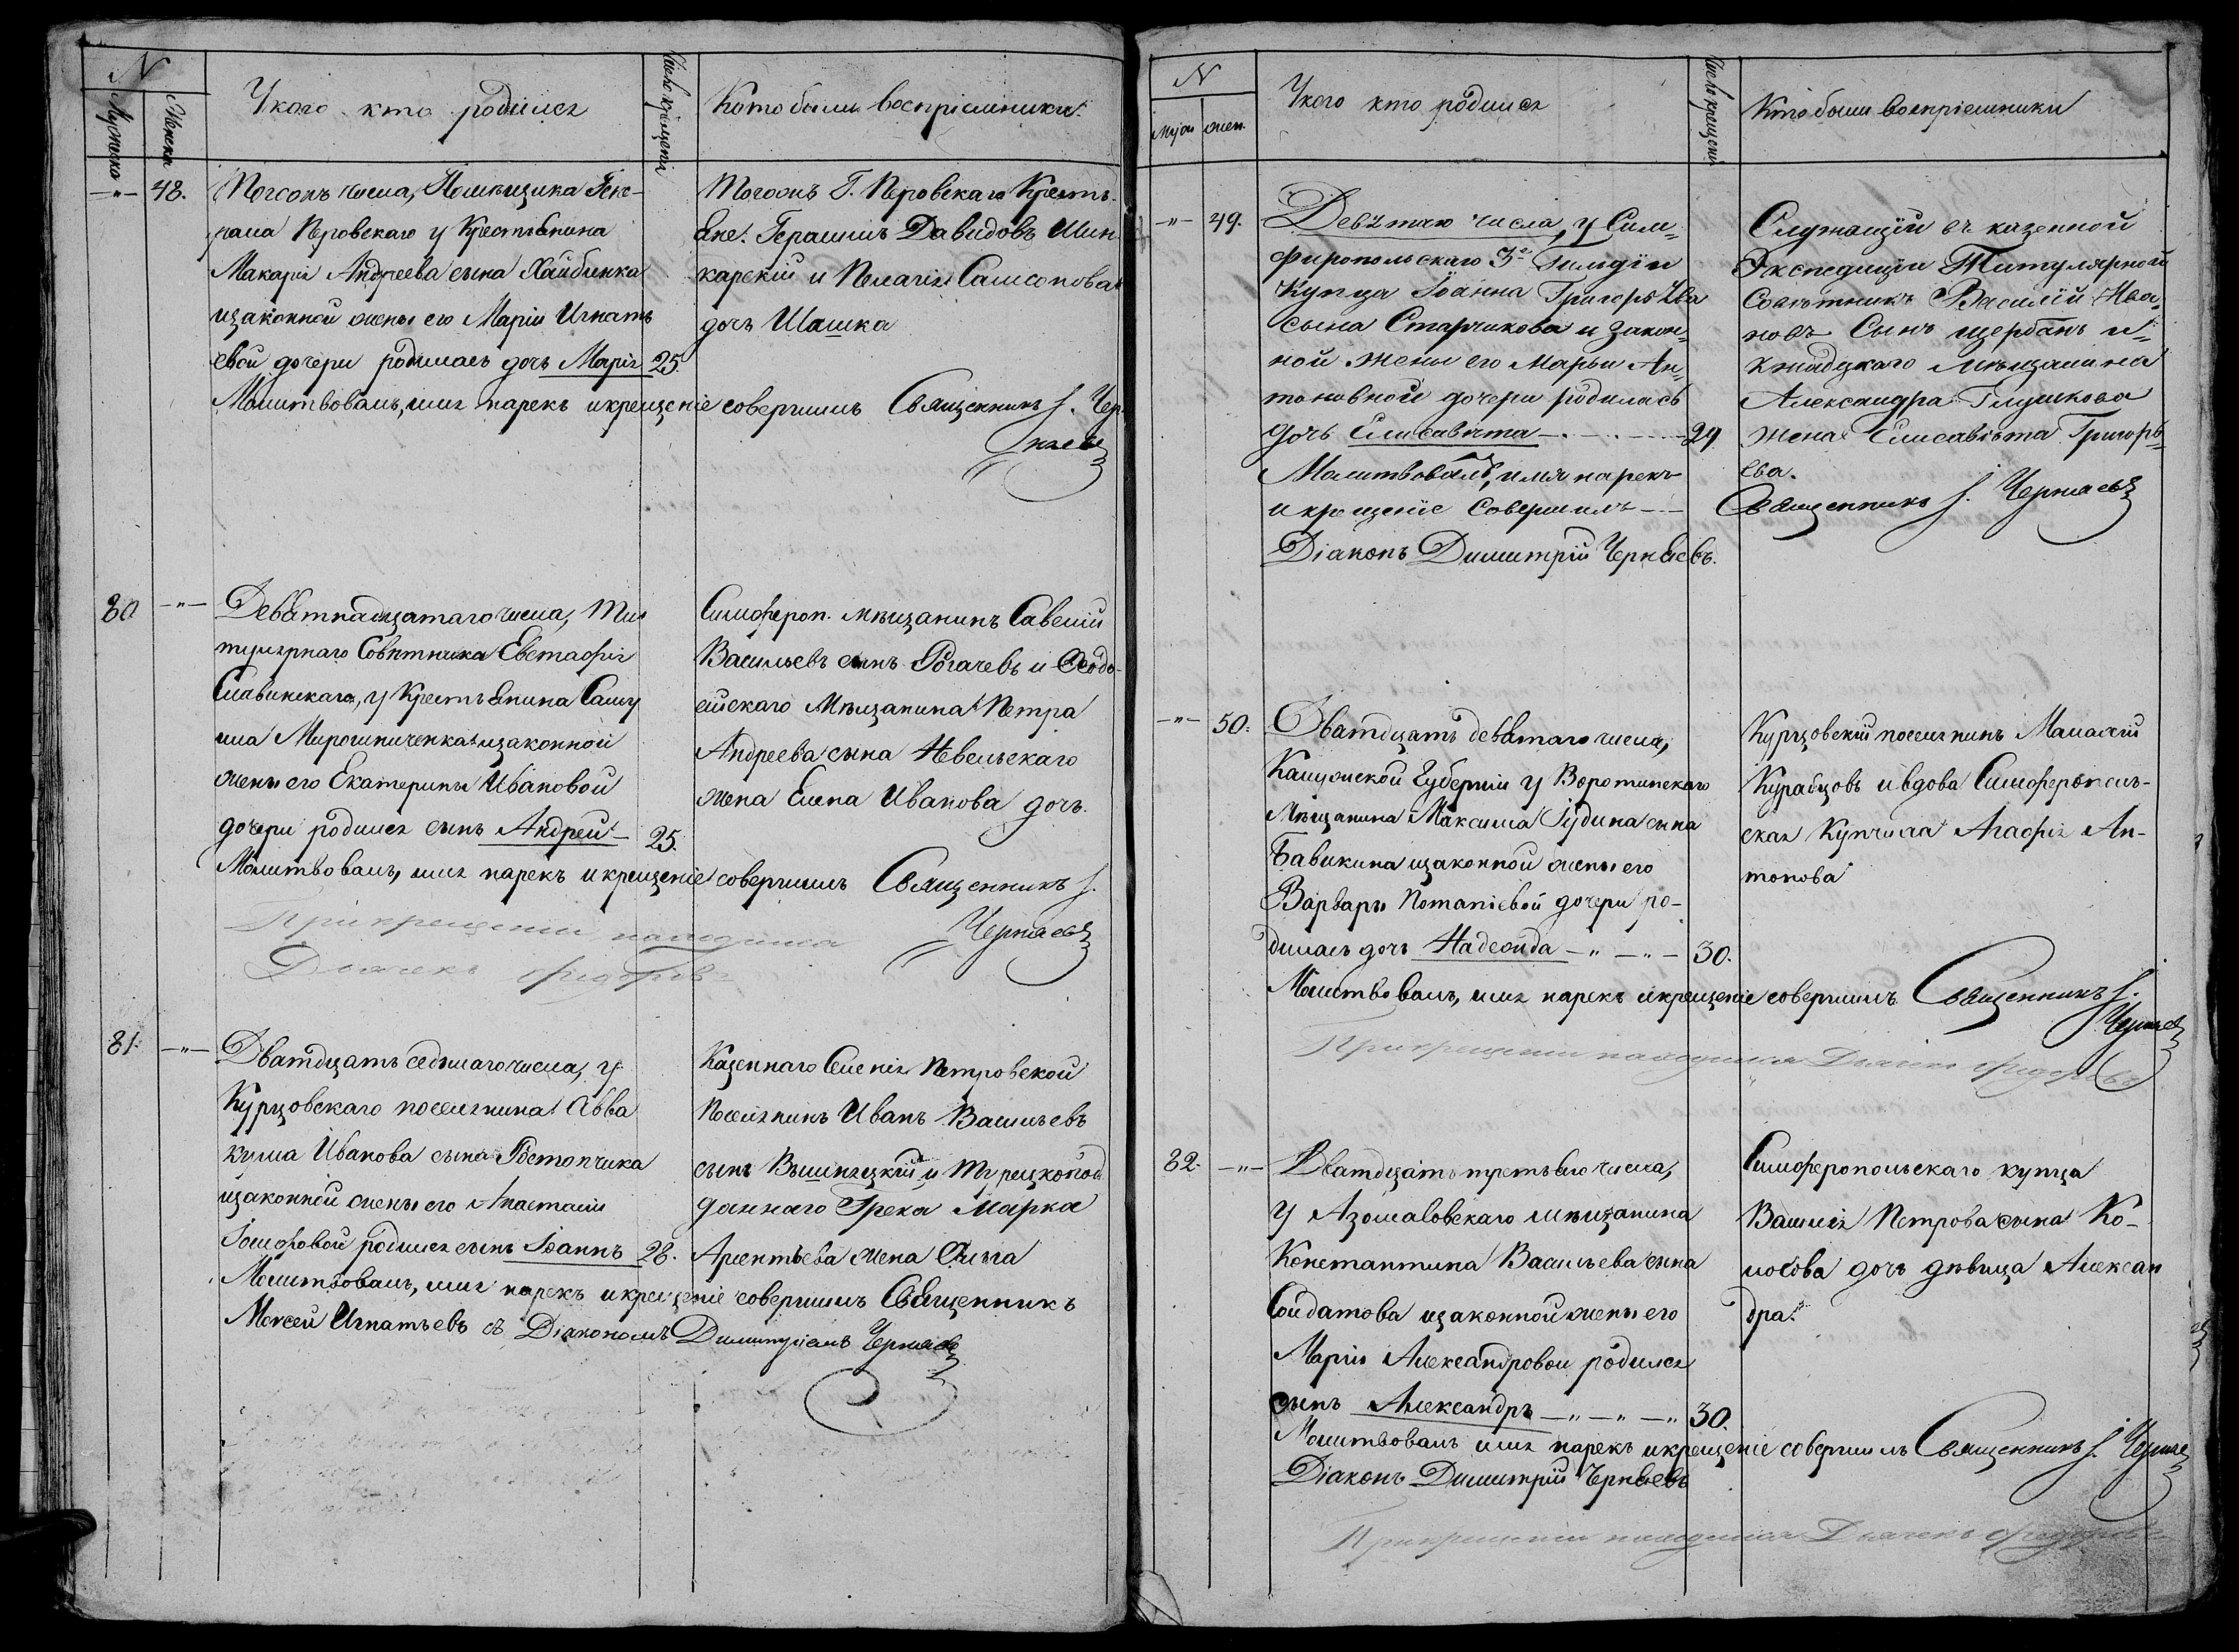 N
Мужеска
Женска
У кого кто родился
Число крещенія
Кто были воспріемники
48.
Тогожъ числа, Помѣщика Гене-
рала Перовскаго у Крестьянина
Макарія Андреева сына Хайбинка
изаконной жены его Маріи Игнать
евой дочери родилась дочь Марія 25.
Тогожъ Г. Перовскаго Кресть-
яне. Герасимъ Давидовъ Шин
карскій и Пелагія Самсонова
дочь Шашка
Молитвовалъ, имя нарекъ и крещеніе совершилъ Священникъ І. Чер
няевъ
80
Девятнадцатаго числа, Ти
тулярнаго Совѣтника Евстафія
Славинскаго, у Крестьянина Саму
ила Мирошниченка изаконной
жены его Екатерины Ивановой
дочери родился сынъ Андрей 25.
Симфероп. мѣщанинъ Савелій
Васильевъ сынъ Рогачевъ и Ѳеодо-
сійскаго Мѣщанина Петра
Андреева сына Невельскаго
жена Елена Иванова дочь.
Молитвовалъ, имя нарекъ и крещеніе совершилъ Священникъ І.
Черняевъ
При крещеніи находился
Дьячекъ Федоровъ
81.
Дватдцать седьмаго числа, у
Курцовскаго поселянина Авва
кума Иванова сына Ветончика
изаконной жены его Анастасіи
Іосифовой родился сынъ Іоаннъ 28.
Казеннаго Селенія Петровской
Поселянинъ Иванъ Васильевъ
сынъ и Турецкопод
даннаго Грека Марка
Арентьева жена Ольга
Молитвовалъ, имя нарекъ и крещеніе совершилъ Священникъ
Моѵсей Игнатьевъ съ Діакономъ Димитріемъ Черняевъ
N
Муж
жен.
У кого кто родился
Число крещенія
Кто были воспріемники
49.
Девѣтаго числа, у Сим-
феропольскаго 3й Гильдіи
Купца Іоанна Григорьева
сына Старчикова и закон-
ной жены его Марьи Ан-
тоновной дочери родилась
дочь Елисавѣта 29
Служащій въ казенной
Экспедиціи Титулярной
Совѣтникъ Василій Ива-
новъ Сынъ щербанъ и
мѣщанина
Александра Глушкова
жена Елисавѣта Григорь-
ева.
Молитвовалъ, имя нарекъ
и крещеніе Совершилъ
Священникъ І. Черняевъ
Діаконъ Димитрій Черняевъ.
50.
Дватдцать девятаго числа,
Калужской Губерніи у Воротинскаго
Мѣщанина Максима Іудина сына
Бавикина изаконной жены его
Варвары Потапіевой дочери ро-
дилась дочь Надежда 30.
Курцовскій поселянинъ Манассій
Курабцовъ и вдова Симферополь-
ская Купчиха Агафія Ан-
тонова
Молитвовалъ, имя нарекъ и крещеніе совершилъ Священникъ І.
Черняевъ
При крещеніи находился Дьячекъ Федоровъ
82.
Дватдцать третьяго числа,
у мѣщанина
Константина Васильева сына
Солдатова изаконной жены его
Маріи Александровой родился
сынъ Александръ 30.
Симферопольскаго купца
Василія Петрова сына Ко-
лосова дочь дѣвица Алексан
дра.
Молитвовалъ имя нарекъ и крещеніе совершилъ Священникъ І. Черняевъ
Діаконъ Димитрій Черняевъ
При крещеніи находился Дьячекъ Федоровъ